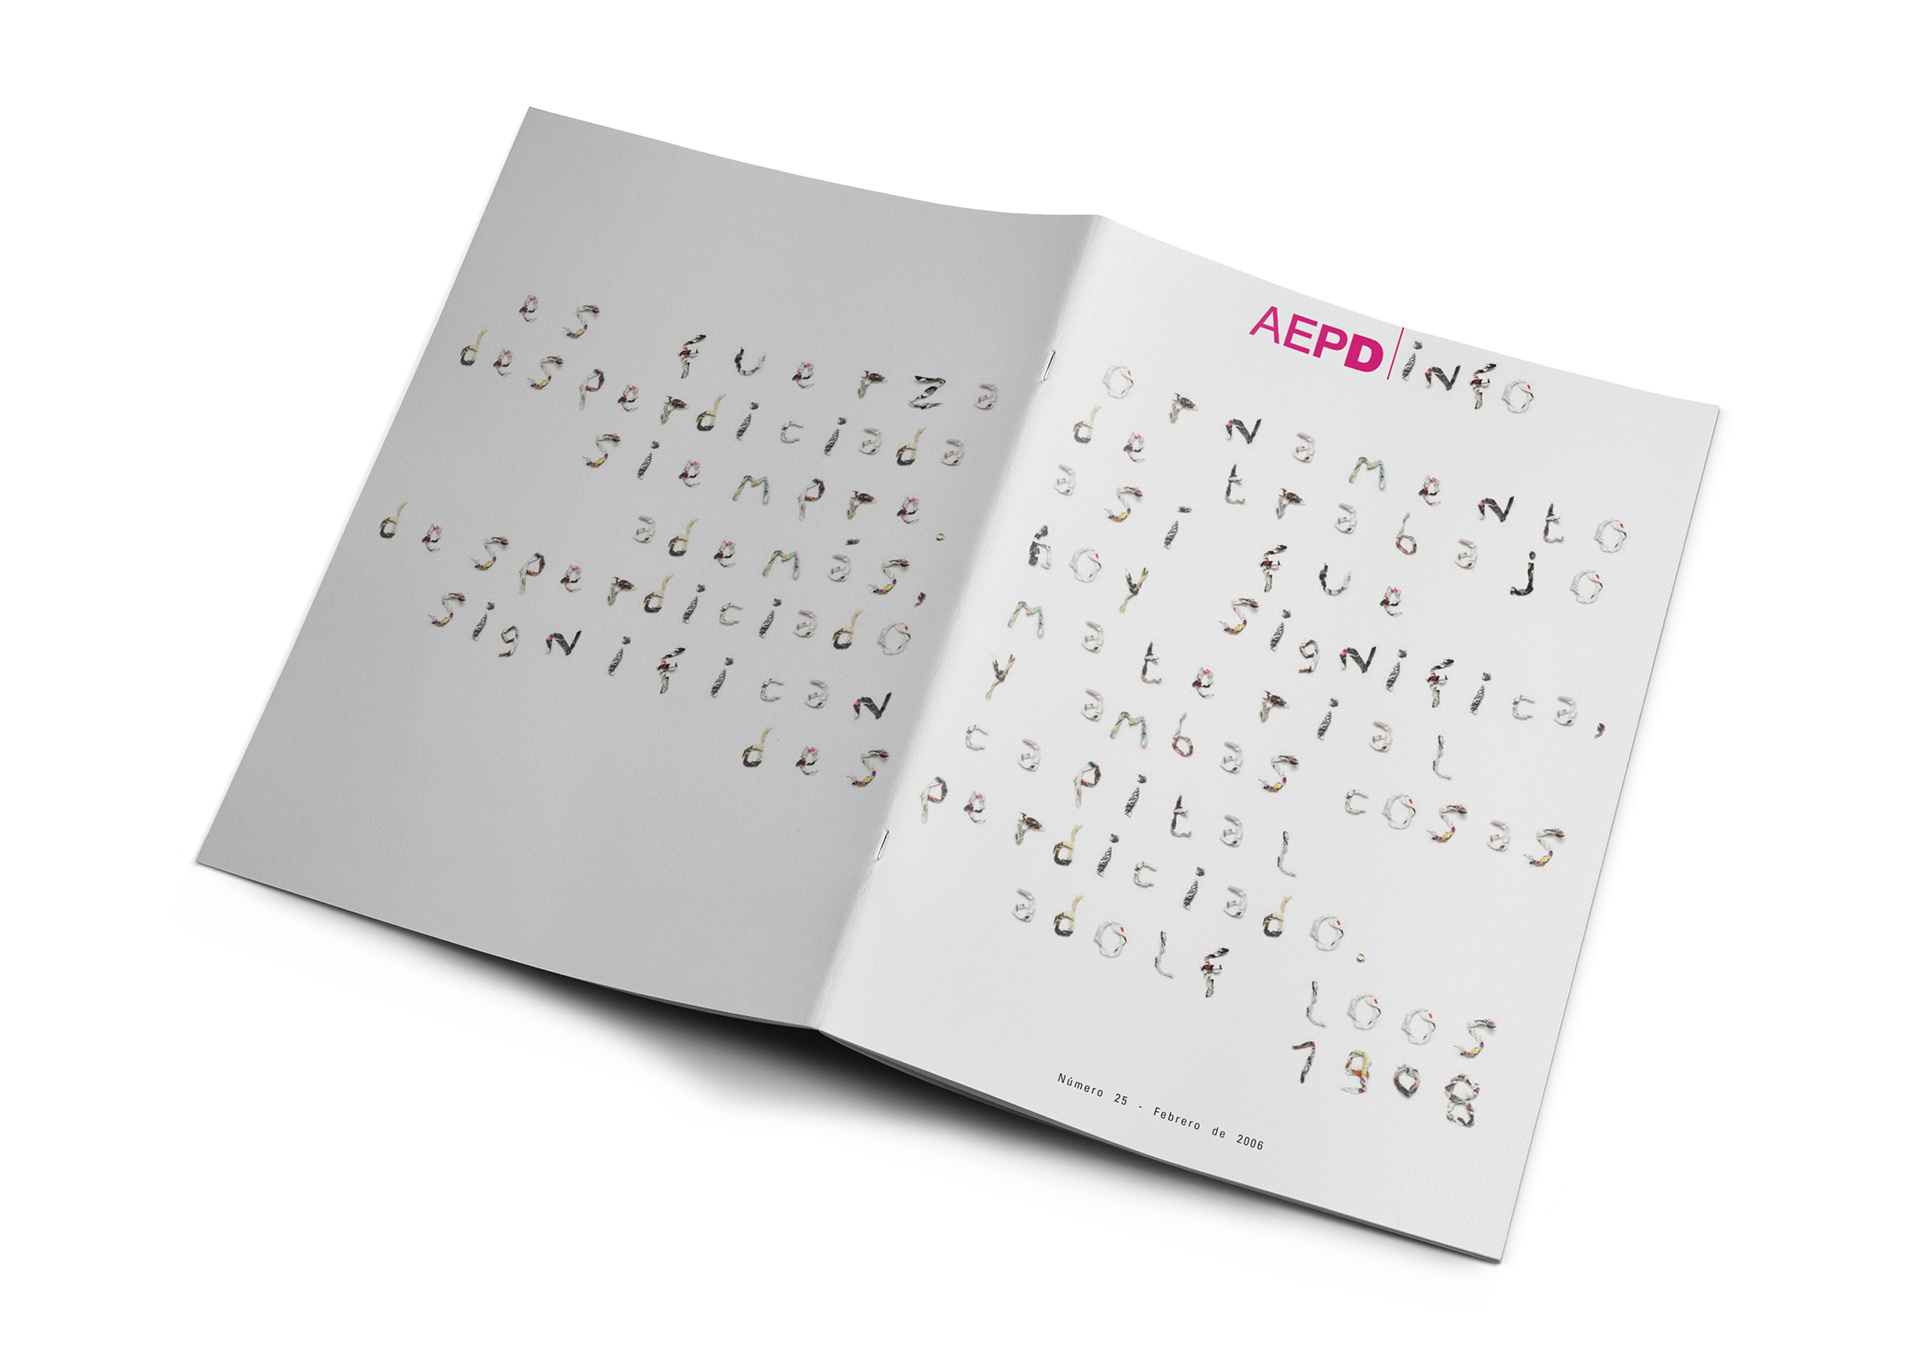 es fuerza
desperdiciada
siempre.
además,
desperdiciado
significan
des
AEPD|info
ornamento
de trabajo
así fue
hoy significa,
material
y ambas cosas
capital
perdiciado.
adolf loos
1908
Número 25 - Febrero de 2006